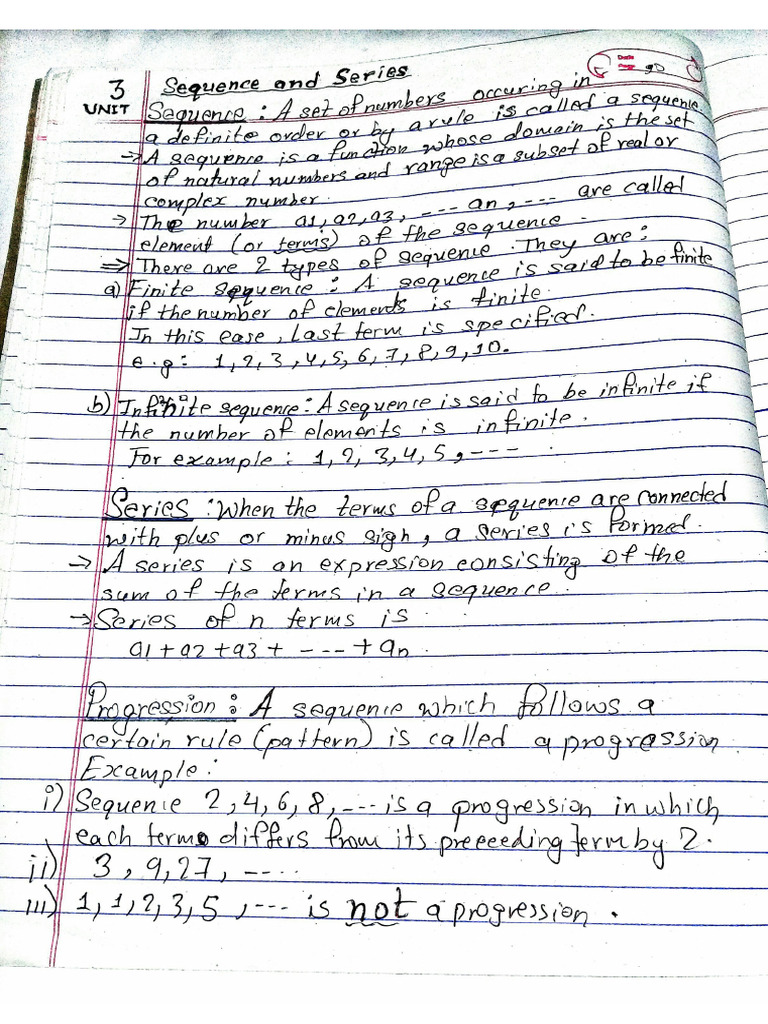 3
UNIT
Sequence and Series
Date
Page 90
Sequence : A set of numbers occuring in
a definite order or by a rule is called a sequence
→ A sequence is a function whose domain is the set
of natural numbers and range is a subset of real or
complex number.
→ The number a1, a2, a3, ---- an, --- are called
element (or terms) of the sequence.
⇒ There are 2 types of sequence. They are:
a) Finite sequence: A sequence is said to be finite
if the number of elements is finite.
In this case, last term is specified.
e.g: 1, 2, 3, 4, 5, 6, 7, 8, 9, 10.
b) Infinite sequence: A sequence is said to be infinite if
the number of elements is infinite.
For example: 1, 2, 3, 4, 5, ----
Series : When the terms of a sequence are connected
with plus or minus sigh, a series is formed.
→ A series is an expression consisting of the
sum of the terms in a sequence.
→ Series of n terms is
a1 + a2 + a3 + ---- + an.
Progression: A sequence which follows a
certain rule (pattern) is called a progression
Example:
i) Sequence 2, 4, 6, 8, --- is a progression in which
each term differs from its preeeeding term by 2.
ii) 3, 9, 27, ----.
iii) 1, 1, 2, 3, 5, --- is not a progression.